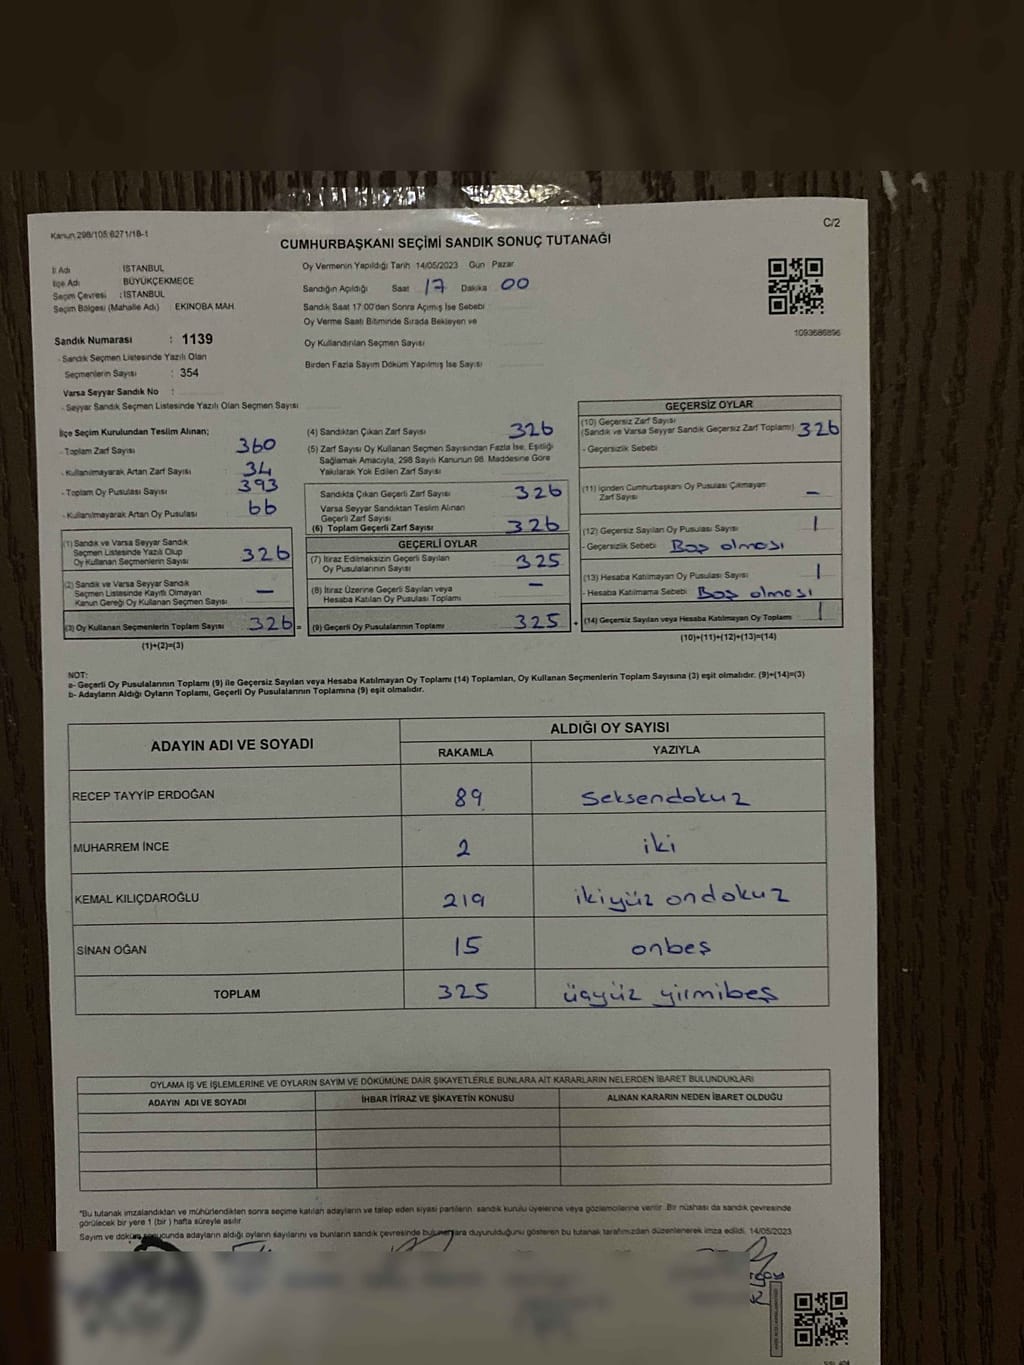 Kanun 298/105 6271/18-1
C/2
CUMHURBAŞKANI SEÇİMİ SANDIK SONUÇ TUTANAĞI
İl Adı İSTANBUL
İlçe Adı BÜYÜKÇEKMECE
Seçim Çevresi : İSTANBUL
Seçim Bölgesi (Mahalle Adı) EKİNOBA MAH.
Sandık Numarası : 1139
- Sandık Seçmen Listesinde Yazılı Olan
Seçmenlerin Sayısı : 354
Varsa Seyyar Sandık No :
- Seyyar Sandık Seçmen Listesinde Yazılı Olan Seçmen Sayısı
Oy Vermenin Yapıldığı Tarih 14/05/2023 Gün Pazar
Sandığın Açıldığı Saat 17 Dakika 00
Sandık Saat 17:00'den Sonra Açımış İse Sebebi
Oy Verme Saati Bitiminde Sırada Bekleyen ve
Oy Kullandırılan Seçmen Sayısı
Birden Fazla Sayım Döküm Yapılmış İse Sayısı
1093686896
İlçe Seçim Kurulundan Teslim Alınan;
- Toplam Zarf Sayısı 360
- Kullanılmayarak Artan Zarf Sayısı 34
- Toplam Oy Pusulası Sayısı 393
- Kullanılmayarak Artan Oy Pusulası 66
(1) Sandık ve Varsa Seyyar Sandık
Seçmen Listesinde Yazılı Olup
Oy Kullanan Seçmenlerin Sayısı 326
(2) Sandık ve Varsa Seyyar Sandık
Seçmen Listesinde Kayıtlı Olmayan
Kanun Gereği Oy Kullanan Seçmen Sayısı –
(3) Oy Kullanan Seçmenlerin Toplam Sayısı 326 =
(1)+(2)=(3)
(4) Sandıktan Çıkan Zarf Sayısı 326
(5) Zarf Sayısı Oy Kullanan Seçmen Sayısından Fazla İse, Eşitliği
Sağlamak Amacıyla, 298 Sayılı Kanunun 98. Maddesine Göre
Yakılarak Yok Edilen Zarf Sayısı
Sandıkta Çıkan Geçerli Zarf Sayısı 326
Varsa Seyyar Sandıktan Teslim Alınan
Geçerli Zarf Sayısı
(6) Toplam Geçerli Zarf Sayısı 326
GEÇERLİ OYLAR
(7) İtiraz Edilmeksizin Geçerli Sayılan
Oy Pusulalarının Sayısı 325
(8) İtiraz Üzerine Geçerli Sayılan veya
Hesaba Katılan Oy Pusulası Toplamı –
(9) Geçerli Oy Pusulalarının Toplamı 325 +
GEÇERSİZ OYLAR
(10) Geçersiz Zarf Sayısı
(Sandık ve Varsa Seyyar Sandık Geçersiz Zarf Toplamı) 326
- Geçersizlik Sebebi
(11) İçinden Cumhurbaşkanı Oy Pusulası Çıkmayan
Zarf Sayısı –
(12) Geçersiz Sayılan Oy Pusulası Sayısı 1
- Geçersizlik Sebebi Boş olması
(13) Hesaba Katılmayan Oy Pusulası Sayısı 1
- Hesaba Katılmama Sebebi Boş olması
(14) Geçersiz Sayılan veya Hesaba Katılmayan Oy Toplamı 1
(10)+(11)+(12)+(13)=(14)
NOT:
a- Geçerli Oy Pusulalarının Toplamı (9) ile Geçersiz Sayılan veya Hesaba Katılmayan Oy Toplamı (14) Toplamları, Oy Kullanan Seçmenlerin Toplam Sayısına (3) eşit olmalıdır. (9)+(14)=(3)
b- Adayların Aldığı Oyların Toplamı, Geçerli Oy Pusulalarının Toplamına (9) eşit olmalıdır.
ADAYIN ADI VE SOYADI ALDIĞI OY SAYISI
RAKAMLA YAZIYLA
RECEP TAYYİP ERDOĞAN 89 Seksendokuz
MUHARREM İNCE 2 iki
KEMAL KILIÇDAROĞLU 219 ikiyüz ondokuz
SİNAN OĞAN 15 onbeş
TOPLAM 325 üçyüz yirmibeş
OYLAMA İŞ VE İŞLEMLERİNE VE OYLARIN SAYIM VE DÖKÜMÜNE DAİR ŞİKAYETLERLE BUNLARA AİT KARARLARIN NELERDEN İBARET BULUNDUKLARI
ADAYIN ADI VE SOYADI İHBAR İTİRAZ VE ŞİKAYETİN KONUSU ALINAN KARARIN NEDEN İBARET OLDUĞU
*Bu tutanak imzalandıktan ve mühürlendikten sonra seçime katılan adayların ve talep eden siyasi partilerin sandık kurulu üyelerine veya gözlemcilerine verilir. Bir nüshası da sandık çevresinde
görülecek bir yere 1 (bir) hafta süreyle asılır.
Sayım ve döküm sonucunda adayların aldığı oyların sayılarını ve bunların sandık çevresinde bulunanlara duyurulduğunu gösteren bu tutanak tarafımızdan düzenlenerek imza edildi. 14/05/2023